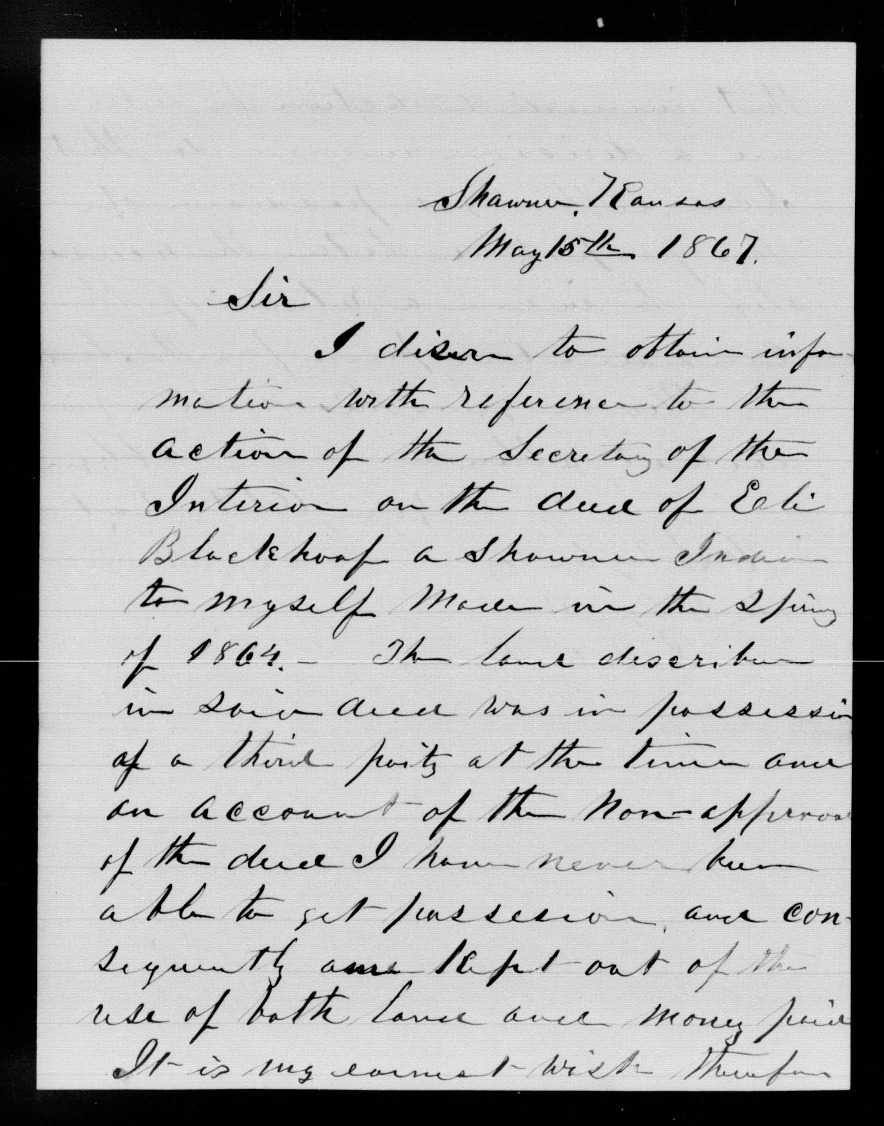 Shawnee, Kansas
May 15th 1867.
Sir
I desire to obtain infor-
mation with reference to the
action of the Secretary of the
Interior on the deed of Eli
Blackhoof a Shawnee Indian
to myself made in the Spring
of 1864. - The land described
in said deed was in possession
of a third party at the time and
on account of the non-approval
of the deed I have never been
able to get possession, and con-
sequently am kept out of the
use of both land and money paid
It is my earnest wish therefore